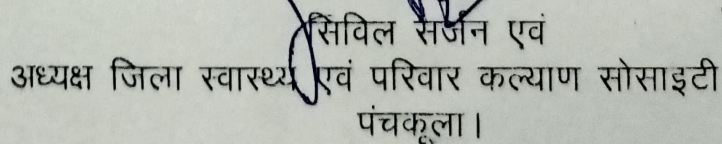 सिविल सर्जन एवं
अध्यक्ष जिला स्वास्थ्य एवं परिवार कल्याण सोसाइटी
पंचकूला।